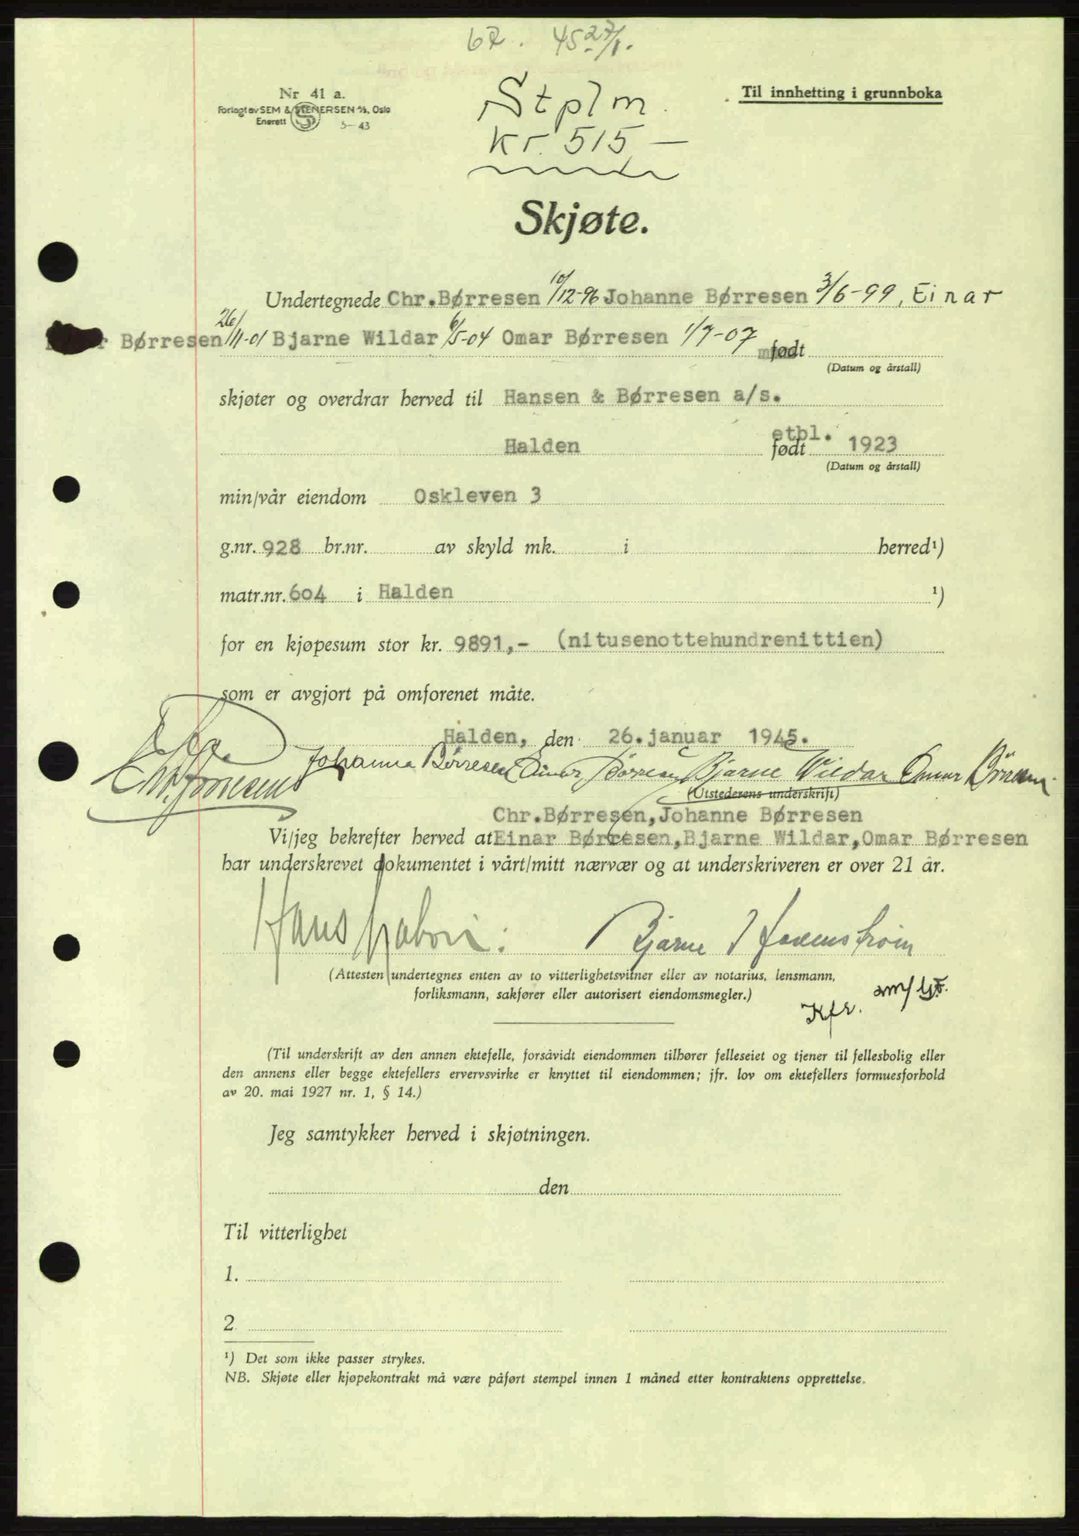 62. 45 27/1.
Nr 41 a.
Forlagt av SEM & STENERSEN A/S, Oslo
Enerett S 5-43
Til innhefting i grunnboka
Stplm.
Kr. 515 —
Skjøte.
Undertegnede Chr.Børresen 10/12-96 Johanne Børresen 3/6-99, Einar
Børresen 26/11-01 Bjarne Wildar 6/5-04 Omar Børresen 1/7-07 født
(Datum og årstall)
skjøter og overdrar herved til Hansen & Børresen a/s.
Halden etbl. født 1923
(Datum og årstall)
min/vår eiendom Oskleven 3
g.nr. 928 br.nr. av skyld mk. i herred¹)
matr.nr. 604 i Halden ¹)
for en kjøpesum stor kr. 9891,- (nitusenottehundrenittien)
som er avgjort på omforenet måte.
Halden, den 26.januar 1945.
Chr. Børresen Johanna Børresen Einar Børresen Bjarne Wildar Omar Børresen
(Utstederens underskrift)
Chr.Børresen,Johanne Børresen
Vi/jeg bekrefter herved at Einar Børresen,Bjarne Wildar,Omar Børresen
har underskrevet dokumentet i vårt/mitt nærvær og at underskriveren er over 21 år.
Hans Bjarne
(Attesten undertegnes enten av to vitterlighetsvitner eller av notarius, lensmann,
forliksmann, sakfører eller autorisert eiendomsmegler.)
Kfr.
(Til underskrift av den annen ektefelle, forsåvidt eiendommen tilhører felleseiet og tjener til fellesbolig eller
den annens eller begge ektefellers ervervsvirke er knyttet til eiendommen; jfr. lov om ektefellers formuesforhold
av 20. mai 1927 nr. 1, § 14.)
Jeg samtykker herved i skjøtningen.
den
Til vitterlighet
1.
2
¹) Det som ikke passer strykes.
NB. Skjøte eller kjøpekontrakt må være påført stempel innen 1 måned etter kontraktens opprettelse.